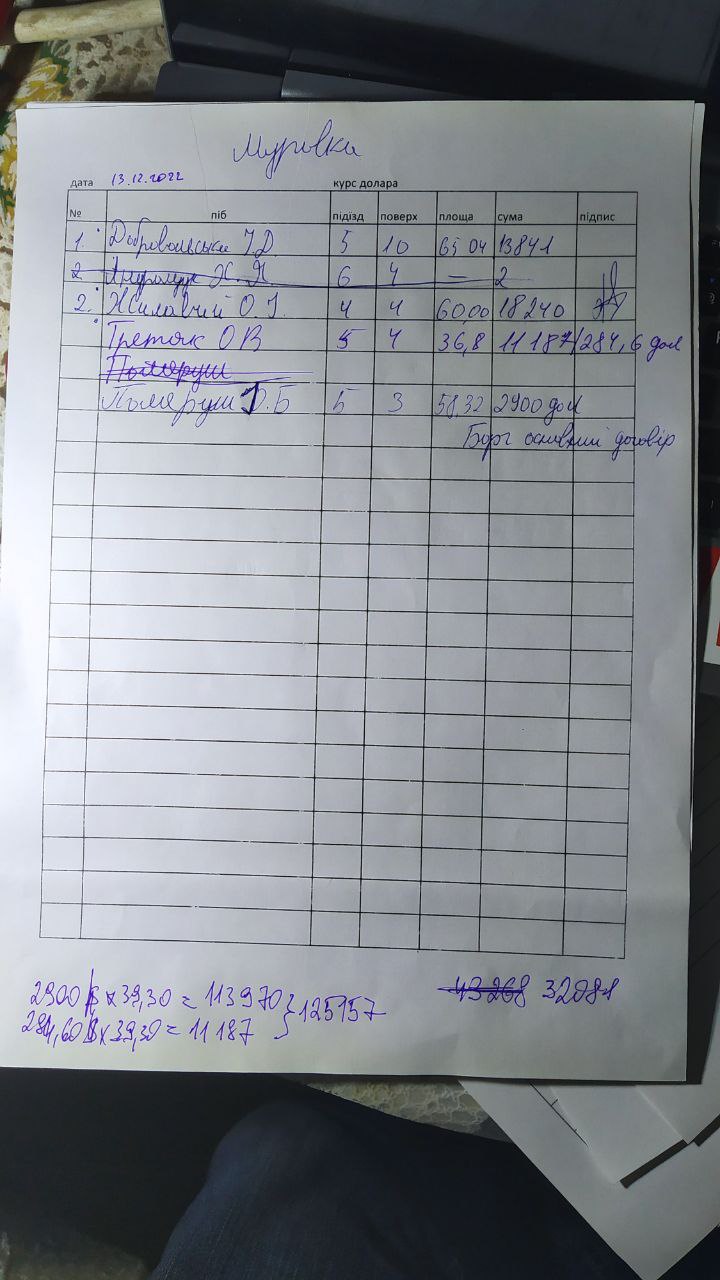 Муровка
дата 13.12.2022 курс долара
№ піб підізд поверх площа сума підпис
1. Добровольська І.Д. 5 10 65 04 13841
2 Х. Я. 6 4 — 2
2. Жилавчій О. І. 4 4 60,00 18240
Третяк О В 5 4 36,8 11187/284,6 дол
Помяруш
Помяруш О.Б 5 3 58,32 2900 дол
Борг основний договір
2900 $ х 39,30 = 113970 } 125157
284,60 $ х 39,30 = 11187
43268 32081